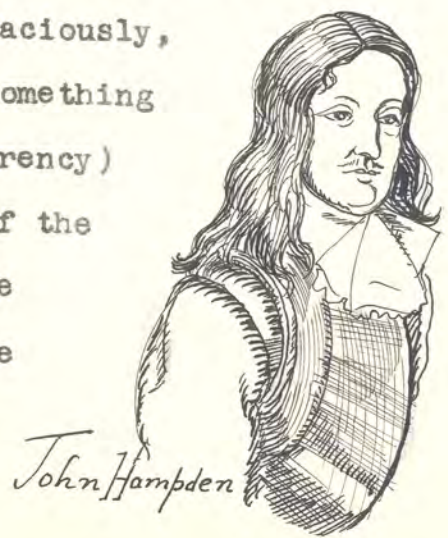 aciously,
omething
rency)
f the
e
e
John Hampden